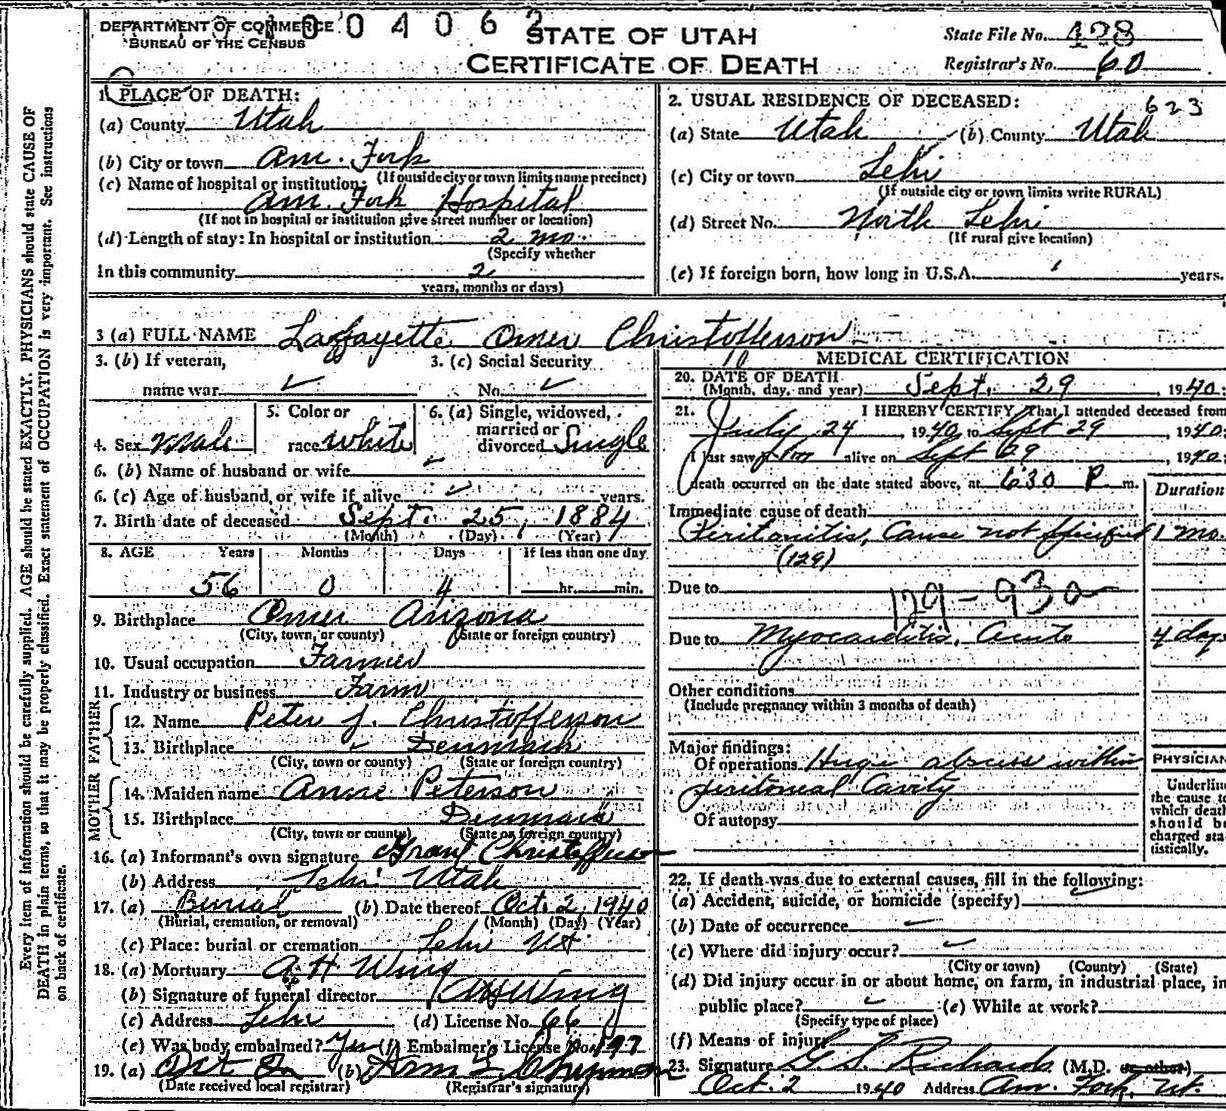 DEPARTMENT OF COMMERCE
BUREAU OF THE CENSUS
0 4 0 6 2
STATE OF UTAH
CERTIFICATE OF DEATH
State File No. 428
Registrar's No. 60
1. PLACE OF DEATH:
(a) County Utah
(b) City or town Am. Fork
(If outside city or town limits name precinct)
(c) Name of hospital or institution:
Am. Fork Hospital
(If not in hospital or institution give street number or location)
(d) Length of stay: In hospital or institution 2 mo.
(Specify whether
In this community 2
years, months or days)
2. USUAL RESIDENCE OF DECEASED: 623
(a) State Utah (b) County Utah
(c) City or town Lehi
(If outside city or town limits write RURAL)
(d) Street No. North Lehi
(If rural give location)
(e) If foreign born, how long in U.S.A. years.
3 (a) FULL NAME Laffayette Omer Christofferson
3. (b) If veteran,
name war ✓
3. (c) Social Security
No. ✓
4. Sex Male
5. Color or
race White
6. (a) Single, widowed,
married or
divorced Single
6. (b) Name of husband or wife ✓
6. (c) Age of husband, or wife if alive ✓ years.
7. Birth date of deceased Sept. 25, 1884
(Month) (Day) (Year)
8. AGE Years Months Days If less than one day
56 0 4 hr. min.
9. Birthplace Omer Arizona
(City, town, or county) (State or foreign country)
10. Usual occupation Farmer
11. Industry or business Farm
FATHER
12. Name Peter J. Christofferson
13. Birthplace Denmark
(City, town or county) (State or foreign country)
MOTHER
14. Maiden name Annie Peterson
15. Birthplace Denmark
(City, town or county) (State or foreign country)
16. (a) Informant's own signature Grant Christofferson
(b) Address Lehi Utah
17. (a) Burial (b) Date thereof Oct. 2, 1940
(Burial, cremation, or removal) (Month) (Day) (Year)
(c) Place: burial or cremation Lehi Ut
18. (a) Mortuary A H Wing
(b) Signature of funeral director AH Wing
(c) Address Lehi (d) License No. 66
(e) Was body embalmed? Yes (f) Embalmer's License No. 197
19. (a) Oct (b)
(Date received local registrar) (Registrar's signature)
10 MEDICAL CERTIFICATION
20. DATE OF DEATH
(Month, day, and year) Sept. 29, 1940.
21. I HEREBY CERTIFY, That I attended deceased from
July 24, 1940, to Sept 29, 1940.
I last saw alive on Sept 29, 1940.
death occurred on the date stated above, at 630 P m.
Duration
Immediate cause of death
Peritonitis, Cause not specified 1 mo.
(129)
Due to 129-93a
Due to Myocarditis, Acute 4 days
Other conditions
(Include pregnancy within 3 months of death)
Major findings:
Of operations Huge abscess within
peritoneal Cavity
Of autopsy
PHYSICIAN
Underline
the cause to
which death
should be
charged sta-
tistically.
22. If death was due to external causes, fill in the following:
(a) Accident, suicide, or homicide (specify)
(b) Date of occurrence
(c) Where did injury occur?
(City or town) (County) (State)
(d) Did injury occur in or about home, on farm, in industrial place, in
public place? (e) While at work?
(Specify type of place)
(f) Means of injury
23. Signature G. S. Richards (M.D. or other)
Oct. 2 1940 Address Am. Fork, Ut.
Every item of information should be carefully supplied. AGE should be stated EXACTLY. PHYSICIANS should state CAUSE OF
DEATH in plain terms, so that it may be properly classified. Exact statement of OCCUPATION is very important. See instructions
on back of certificate.